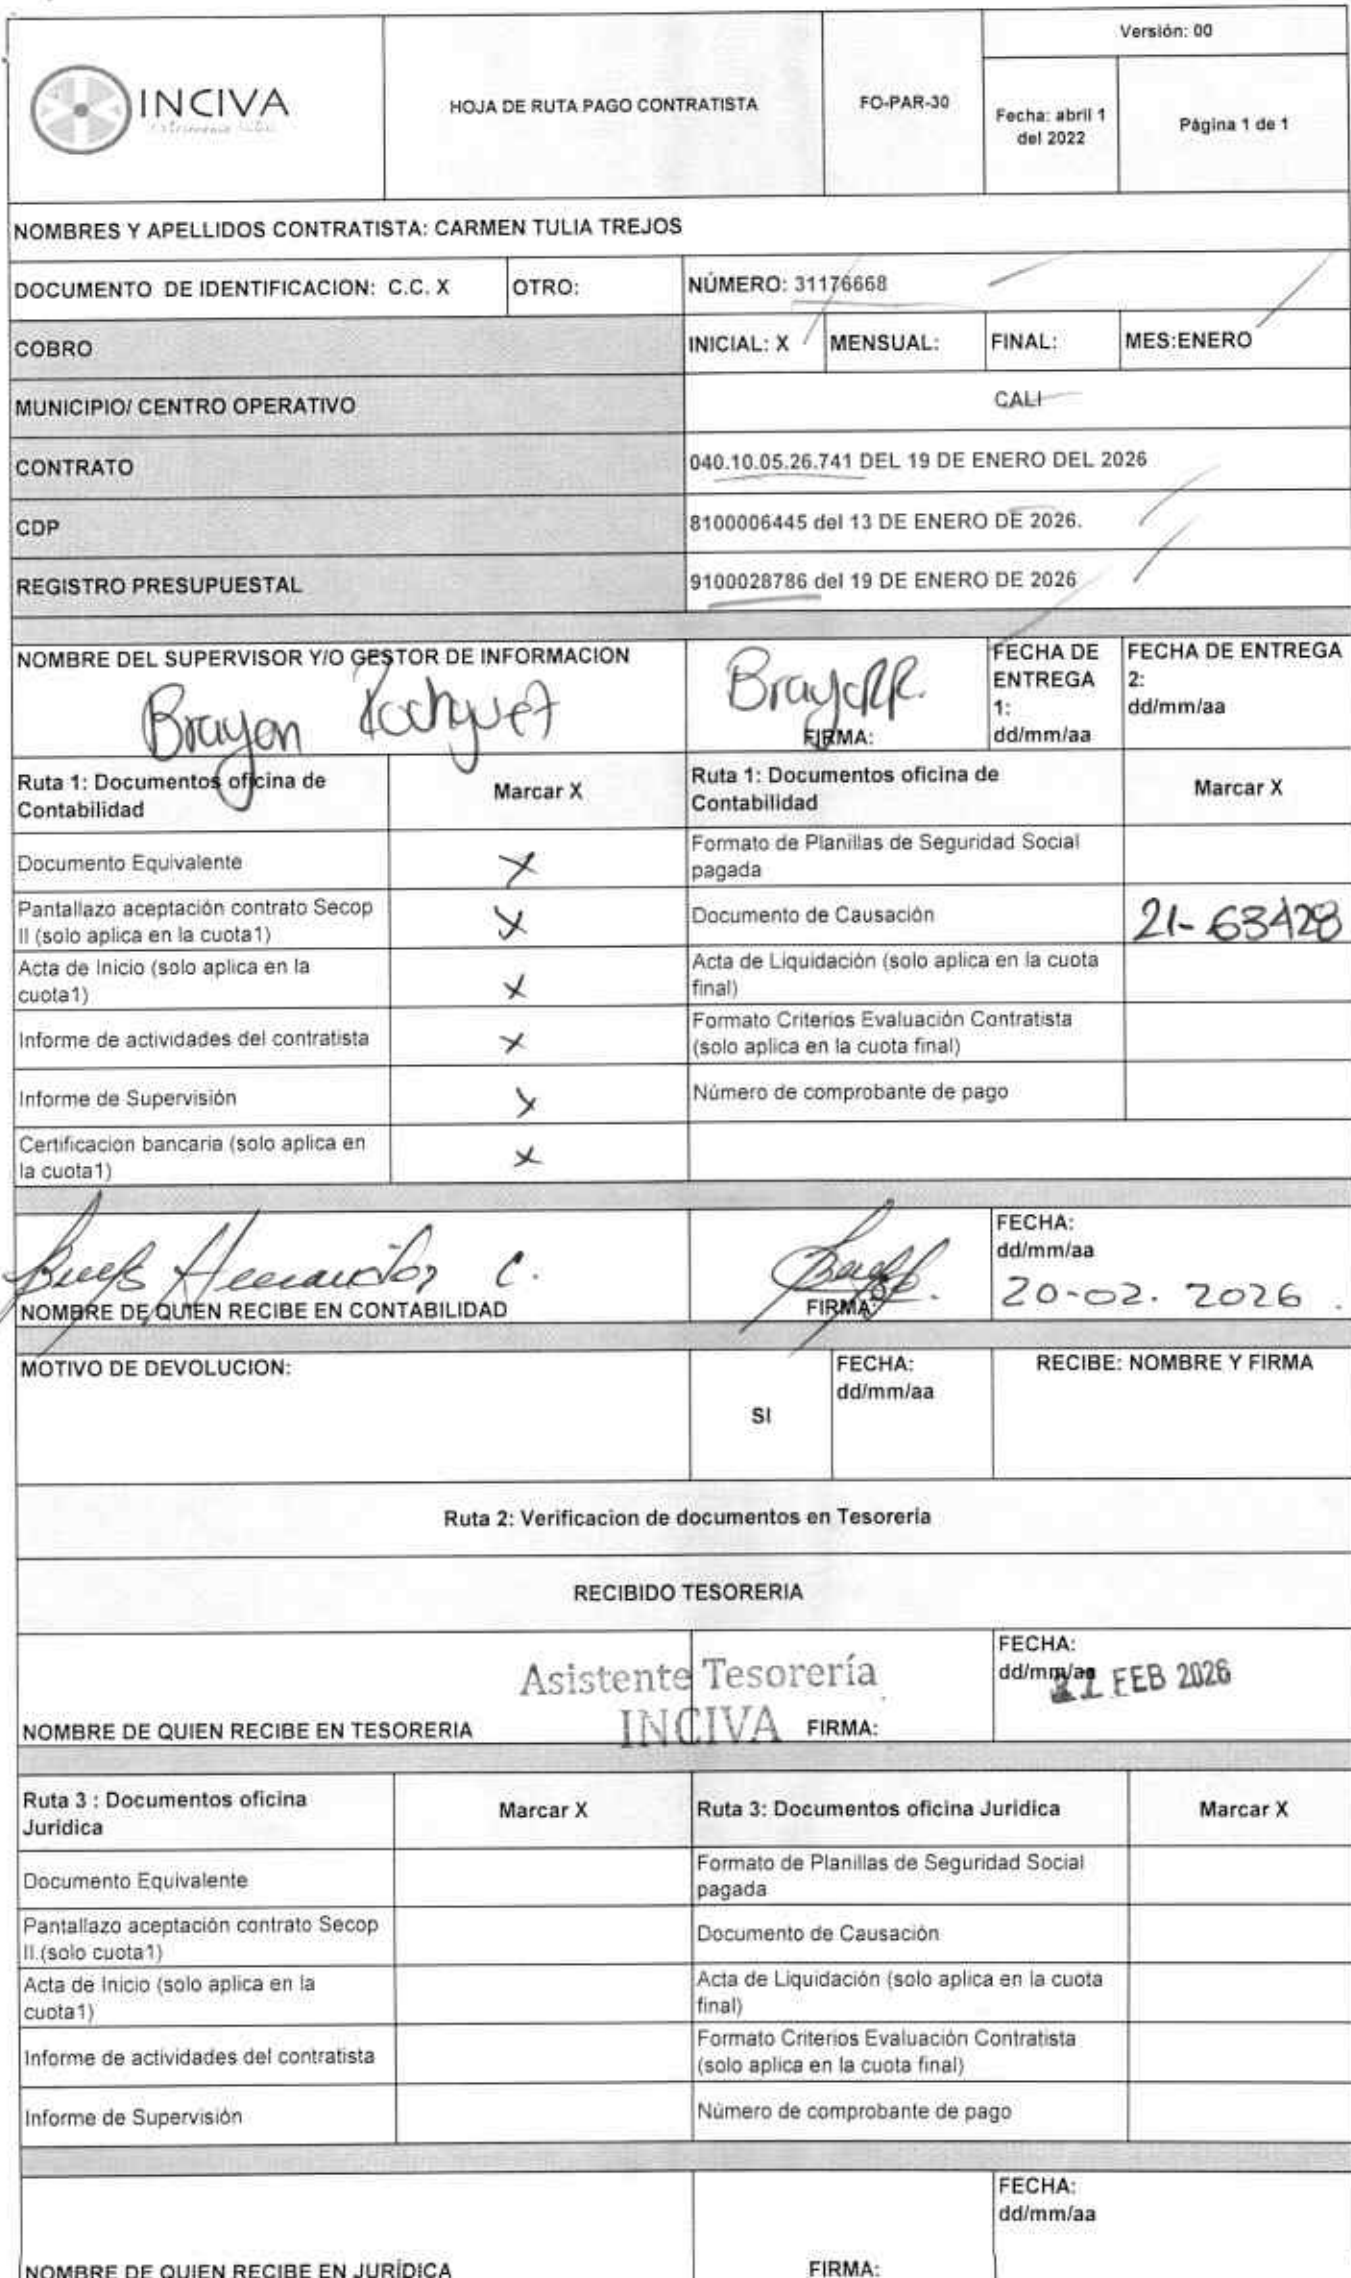 INCIVA
HOJA DE RUTA PAGO CONTRATISTA
FO-PAR-30
Versión: 00
Fecha: abril 1
del 2022
Página 1 de 1
NOMBRES Y APELLIDOS CONTRATISTA: CARMEN TULIA TREJOS
DOCUMENTO DE IDENTIFICACION: C.C. X
OTRO:
NÚMERO: 31176668
COBRO
INICIAL: X
MENSUAL:
FINAL:
MES:ENERO
MUNICIPIO/ CENTRO OPERATIVO
CALI
CONTRATO
040.10.05.26.741 DEL 19 DE ENERO DEL 2026
CDP
8100006445 del 13 DE ENERO DE 2026.
REGISTRO PRESUPUESTAL
9100028786 del 19 DE ENERO DE 2026
NOMBRE DEL SUPERVISOR Y/O GESTOR DE INFORMACION
Brayan
FIRMA:
FECHA DE
ENTREGA
1:
dd/mm/aa
FECHA DE ENTREGA
2:
dd/mm/aa
Ruta 1: Documentos oficina de
Contabilidad
Marcar X
Ruta 1: Documentos oficina de
Contabilidad
Marcar X
Documento Equivalente
X
Formato de Planillas de Seguridad Social
pagada
Pantallazo aceptación contrato Secop
II (solo aplica en la cuota1)
X
Documento de Causación
21-63428
Acta de Inicio (solo aplica en la
cuota1)
X
Acta de Liquidación (solo aplica en la cuota
final)
Informe de actividades del contratista
X
Formato Criterios Evaluación Contratista
(solo aplica en la cuota final)
Informe de Supervisión
X
Número de comprobante de pago
Certificacion bancaria (solo aplica en
la cuota1)
X
C.
NOMBRE DE QUIEN RECIBE EN CONTABILIDAD
FIRMA:
FECHA:
dd/mm/aa
20-02. 2026.
MOTIVO DE DEVOLUCION:
SI
FECHA:
dd/mm/aa
RECIBE: NOMBRE Y FIRMA
Ruta 2: Verificacion de documentos en Tesoreria
RECIBIDO TESORERIA
Asistente Tesorería
INCIVA
NOMBRE DE QUIEN RECIBE EN TESORERIA
FIRMA:
FECHA:
dd/mm/aa
FEB 2026
Ruta 3 : Documentos oficina
Juridica
Marcar X
Ruta 3: Documentos oficina Juridica
Marcar X
Documento Equivalente
Formato de Planillas de Seguridad Social
pagada
Pantallazo aceptación contrato Secop
II.(solo cuota1)
Documento de Causación
Acta de Inicio (solo aplica en la
cuota1)
Acta de Liquidación (solo aplica en la cuota
final)
Informe de actividades del contratista
Formato Criterios Evaluación Contratista
(solo aplica en la cuota final)
Informe de Supervisión
Número de comprobante de pago
NOMBRE DE QUIEN RECIBE EN JURÍDICA
FIRMA:
FECHA:
dd/mm/aa